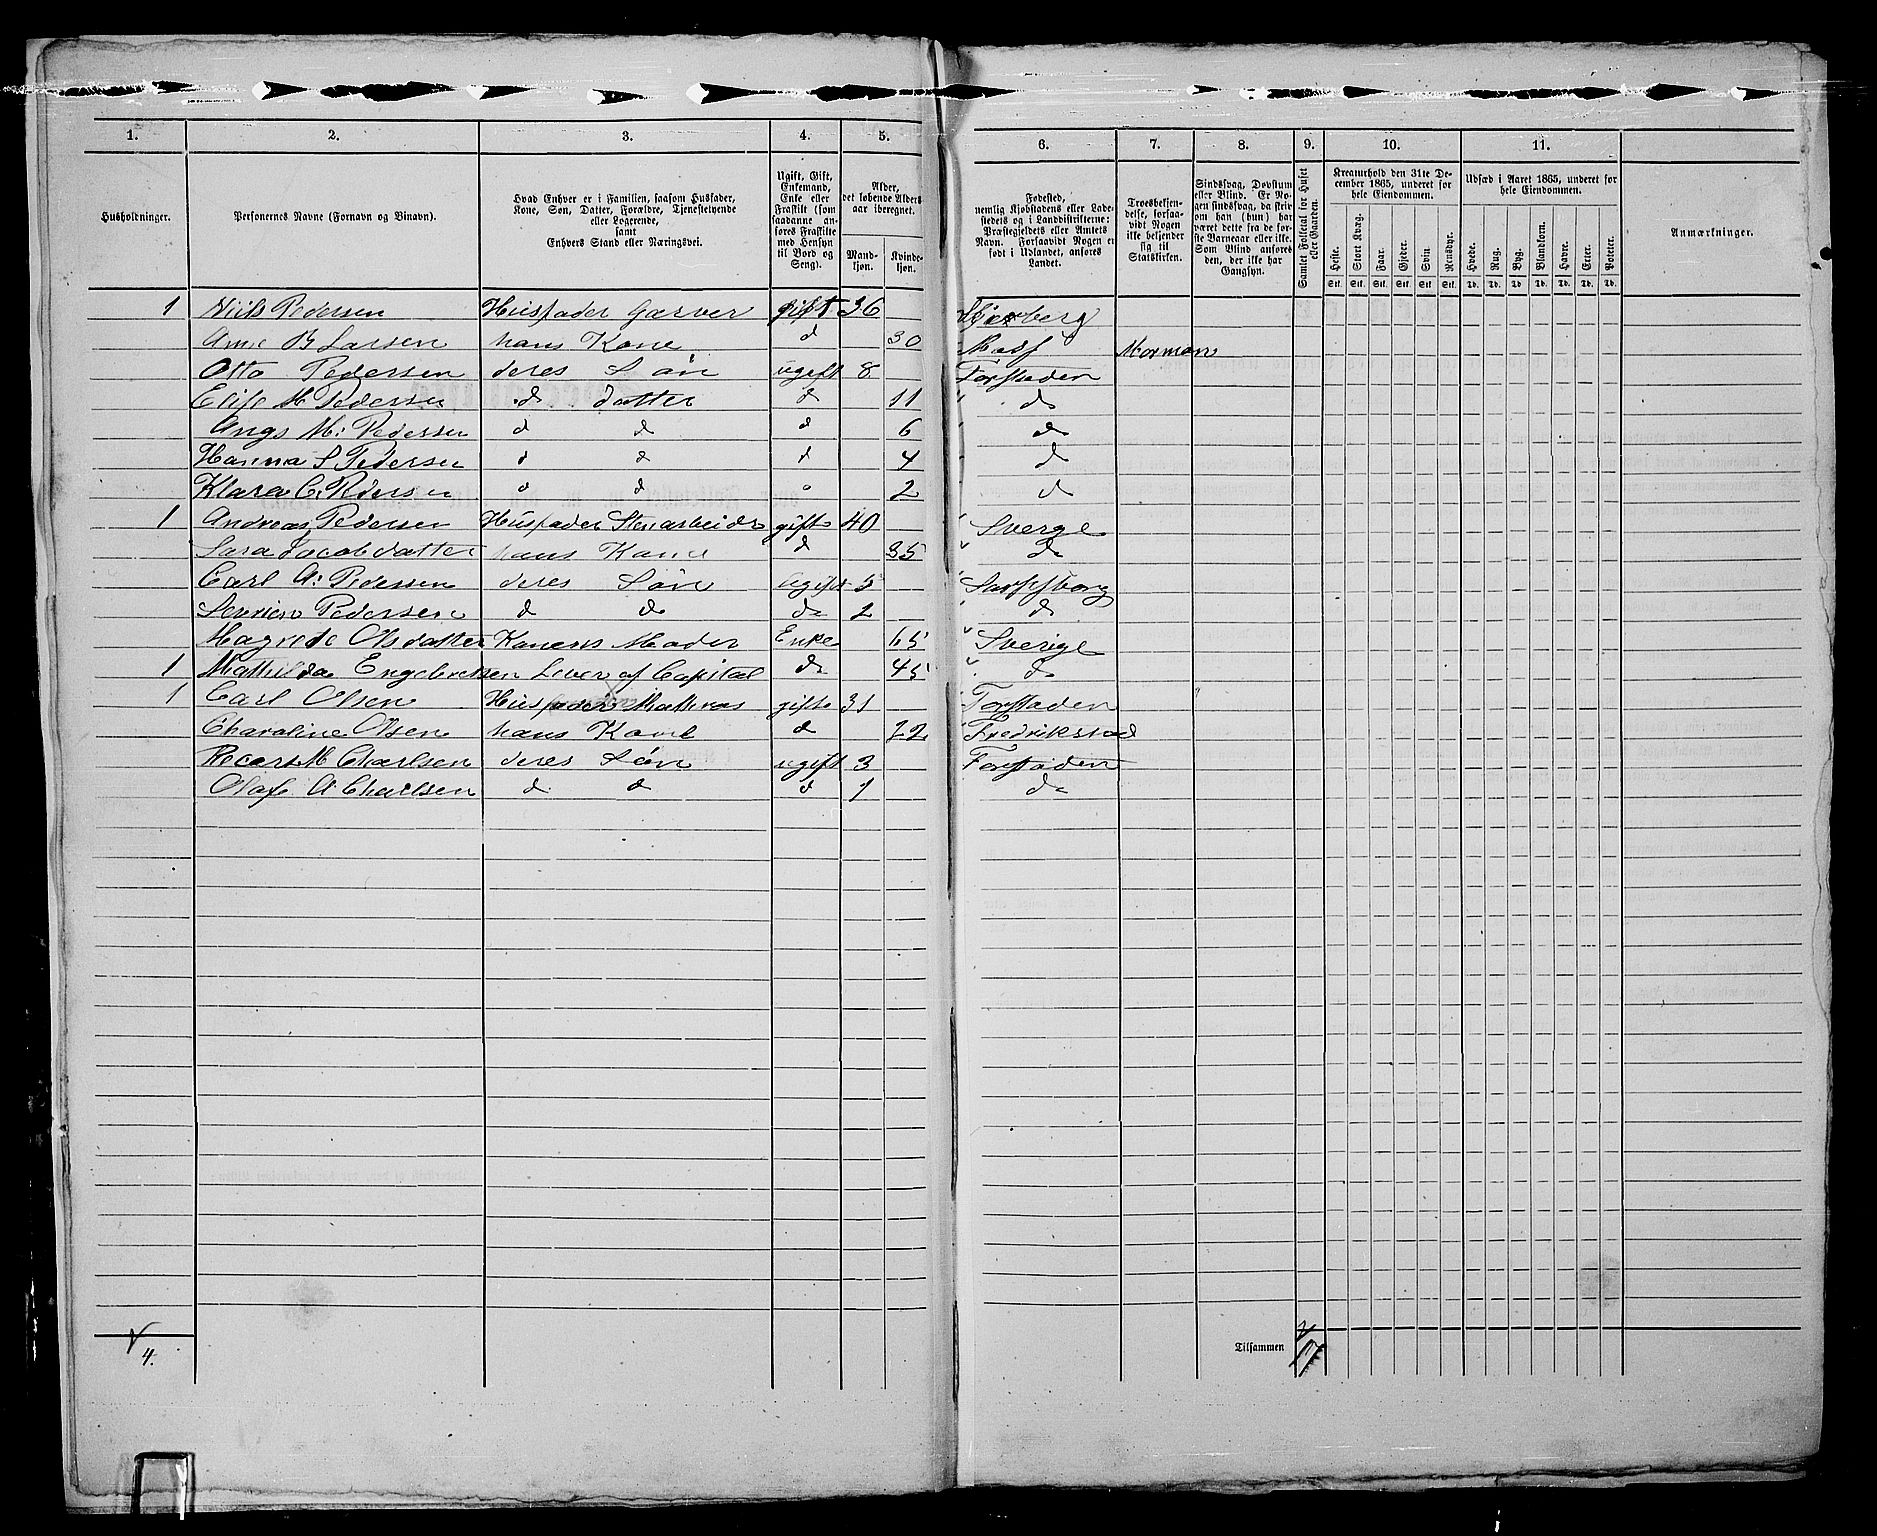 1. 2. 3. 4. 5. 6. 7. 8. 9. 10. 11.
Husholdninger.
Personernes Navne (Fornavn og Vinavn).
Hvad Enhver er i Familien, saasom Husfader, Kone, Søn, Datter, Forældre, Tjenestetyende eller Logerende, samt Enhvers Stand eller Næringsvei.
Ugift, Gift, Enkemand, Enke eller Fraskilt (som saadanne anføres Fraskilte med Hensyn til Bord og Seng).
Alder, det løbende Aldersaar iberegnet.
Mandkjøn. Kvindekjøn.
Fødested, nemlig Kjøbstadens eller Ladestedets og i Landdistrikterne: Præstegjeldets eller Amtets Navn. Forsaavidt Nogen er født i Udlandet, anføres Landet.
Troesbekjendelse, forsaavidt Nogen ikke bekjender sig til Statskirken.
Sindssvag, Døvstum eller Blind. Er Nogen sindssvag, da skrives om han (hun) har været dette fra de første Barneaar eller ikke. Som Blind anføres den, der ikke har Gangsyn.
Samlet Folketal for Huset eller Gaarden.
Kreaturhold den 31te December 1865, underet for hele Eiendommen.
Heste. Stort Kvæg. Faar. Gjeder. Svin. Rensdyr.
Stk. Stk. Stk. Stk. Stk. Stk.
Udsæd i Aaret 1865, underet for hele Eiendommen.
Hvede. Rug. Byg. Blandkorn. Havre. Erter. Poteter.
Td. Td. Td. Td. Td. Td. Td.
Anmærkninger.
1 Niils Pedersen Husfader Garver gift 36 Skjeberg
Ane B Larsen hans Kone d 30 Mormon
Otto Pedersen deres Søn ugift 8 Forstaden
Elise M Pedersen d datter d 11 d
M: Pedersen d d d 6 d
Hanna S Pedersen d d d 4 d
Klara C. Pedersen d d 2 d
1 Andreas Pedersen Husfader Stenarbeider gift 40 Sverge
Sara Jacobdatter hans Kone d 35 d
Carl A: Pedersen deres Søn ugift 5 Sarpsborg
Pedersen d d d 2 d
Magrede Olsdatter Konens Moder Enke 65 Sverige
1 Mathilda Engebretsen Lever af Capital d 45 d
1 Carl Olsen Husfader Matheros gift 31 Forstaden
Charoline Olsen hans Kone d 22 Fredrikstad
M Charlsen deres Søn ugift 3 Forstaden
Olaf A Charlsen d d d 1 d
4. Tilsammen 17